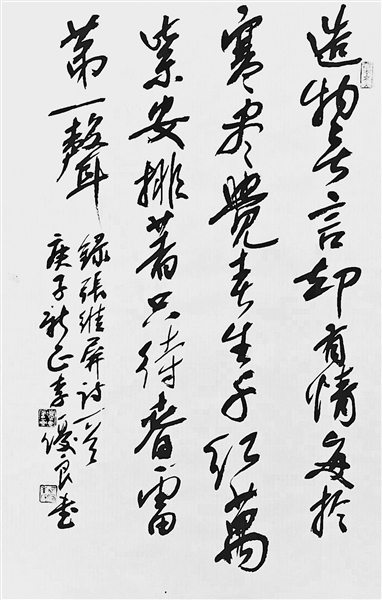 造物无言却有情每於
寒尽覺春生千红萬
紫安排著只待春雷
第一聲
録張維屏诗一首
庚子新正李優良书